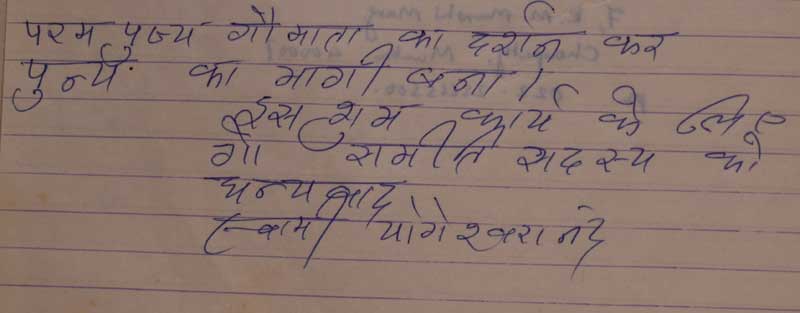 परम पुज्य गौ माता का दर्शन कर
पुन्य का भागी बना।
इस शुभ कार्य के लिए
गौ समिति सदस्य को
धन्यवाद
स्वामी योगेश्वरानंद